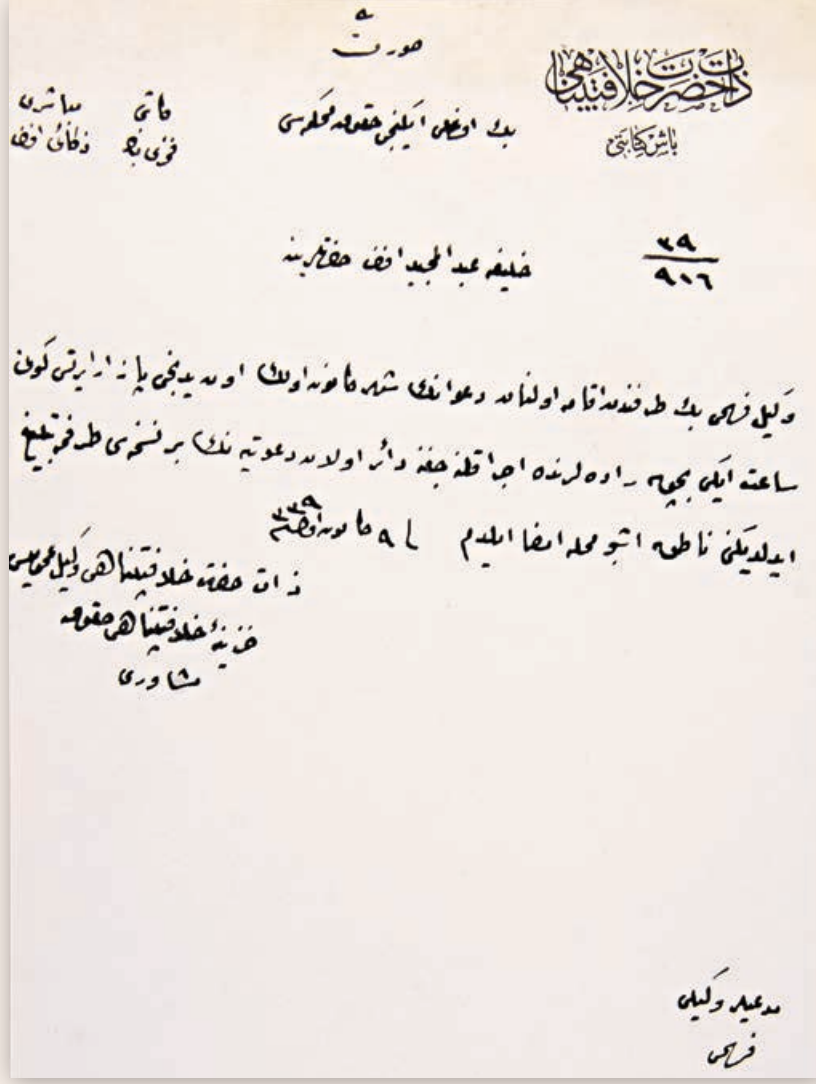 صورت
ذات حضرت خلافتپناهی
باش کتابتی
بك اوغلی ایکنجی حقوق محکمه‌سی
کاتبی
مباشری
فوزی بك
ذکائی افندی
۳۹
۹۱٦
خلیفه عبدالمجید افندی حضرتلرینه
وکیل فهمی بك طرفندن اقامه اولنان دعوانك شهر کانون اولك اون یدنجی پازار ایرتسی کونی
ساعت ایکی بچق راده‌لرنده اجرا قلنه‌جغنه دائر اولان دعوتیه‌نك بر نسخه‌سی طرفمه تبلیغ
ایدلدیکنی ناطق اشبو محله امضا ایلدم ۹ کانون اول سنه ۳۳۹
ذات حضرت خلافتپناهی وکیل عمومیسی
خزینهٔ خلافتپناهی حقوق
مشاوری
مدعیلر وکیلی
فهمی